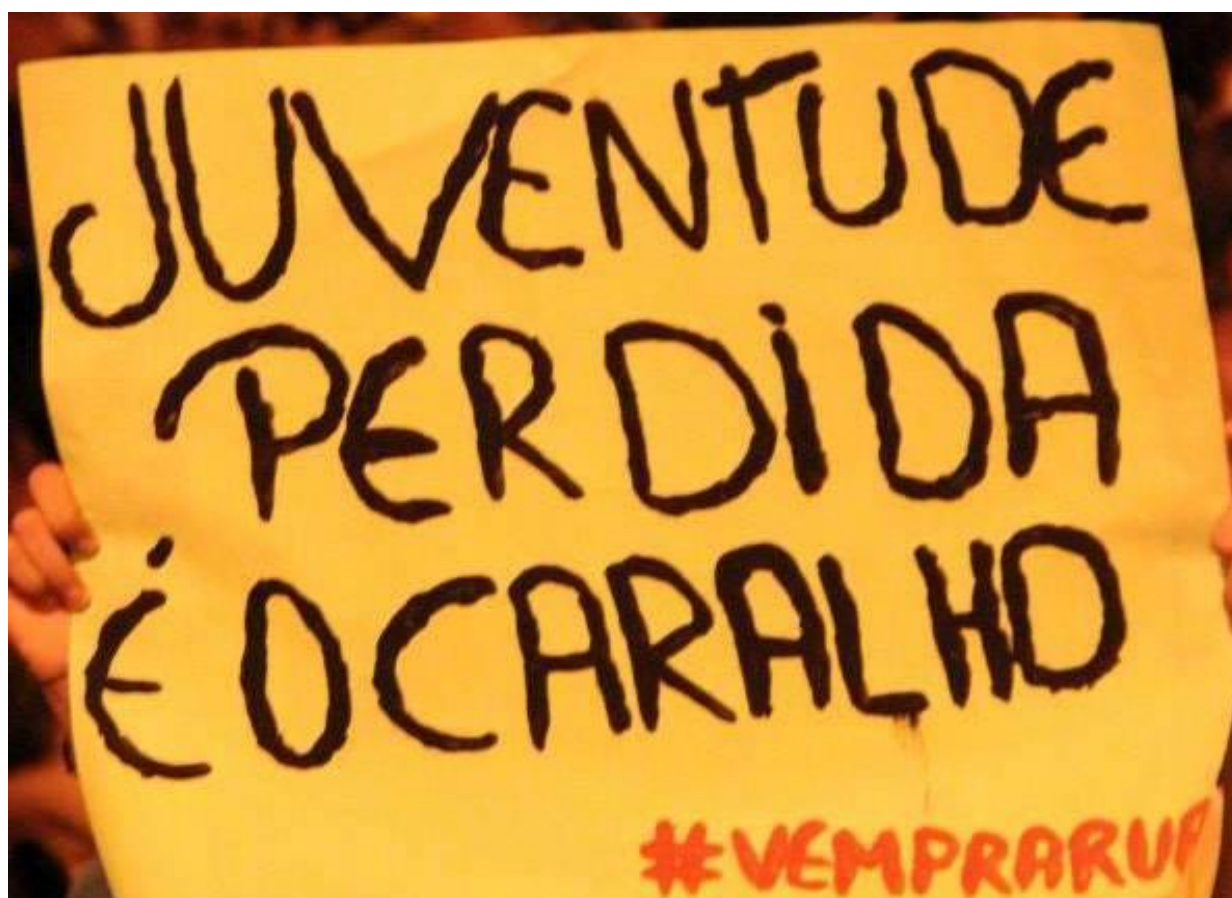 JUVENTUDE
PERDIDA
É O CARALHO
#VEMPRARUA